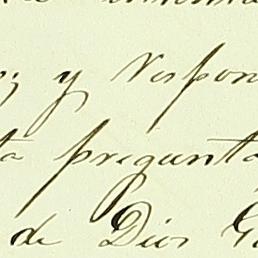 y respon
ta pregunta
de Dios G